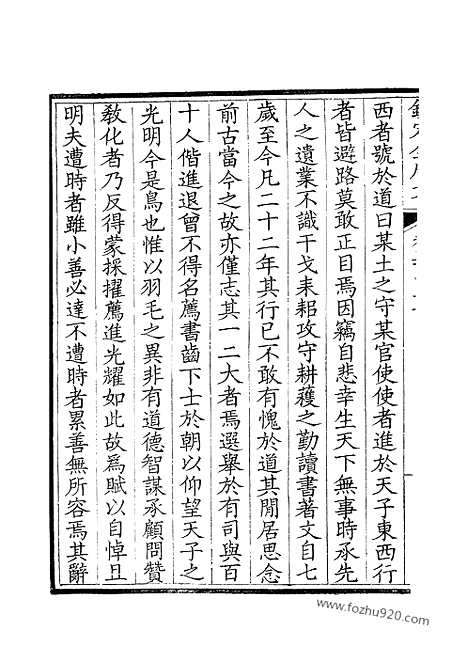 西者號於道曰某土之守某官使使者進於天子東西行
者皆避路莫敢正目焉因竊自悲幸生天下無事時承先
人之遺業不識干戈耒耜攻守耕穫之勤讀書著文自七
歲至今凡二十二年其行已不敢有愧於道其閒居思念
前古當今之故亦僅志其一二大者焉選舉於有司與百
十人偕進退曾不得名薦書齒下士於朝以仰望天子之
光明今是鳥也惟以羽毛之異非有道德智謀承顧問贊
教化者乃反得蒙採擢薦進光耀如此故為賦以自悼且
明夫遭時者雖小善必達不遭時者累善無所容焉其辭
www.fozhu920.com